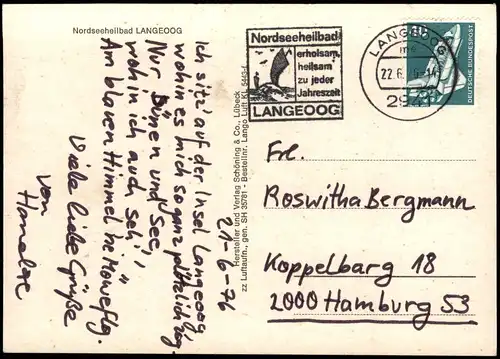 Nordseeheilbad LANGEOOG
Ich sitz' auf der Insel Langeoog
wohin es mich so ganz plötzlich zog
Nur Dünen und See,
wohin ich auch seh',
Am blauen Himmel 'ne Möwe flog.
Viele liebe Grüße
von
21-6-76
Hersteller und Verlag Schöning & Co., Lübeck
zz Luftaufn., gen. SH 35781 - Bestellnr. Lango Luft KL 5443-4
Nordseeheilbad
erholsam,
heilsam
zu jeder
Jahreszeit
LANGEOOG
LANGEOOG
22.6.
294
DEUTSCHE BUNDESPOST
Frl.
Roswitha Bergmann
Koppelbarg 18
2000 Hamburg 53